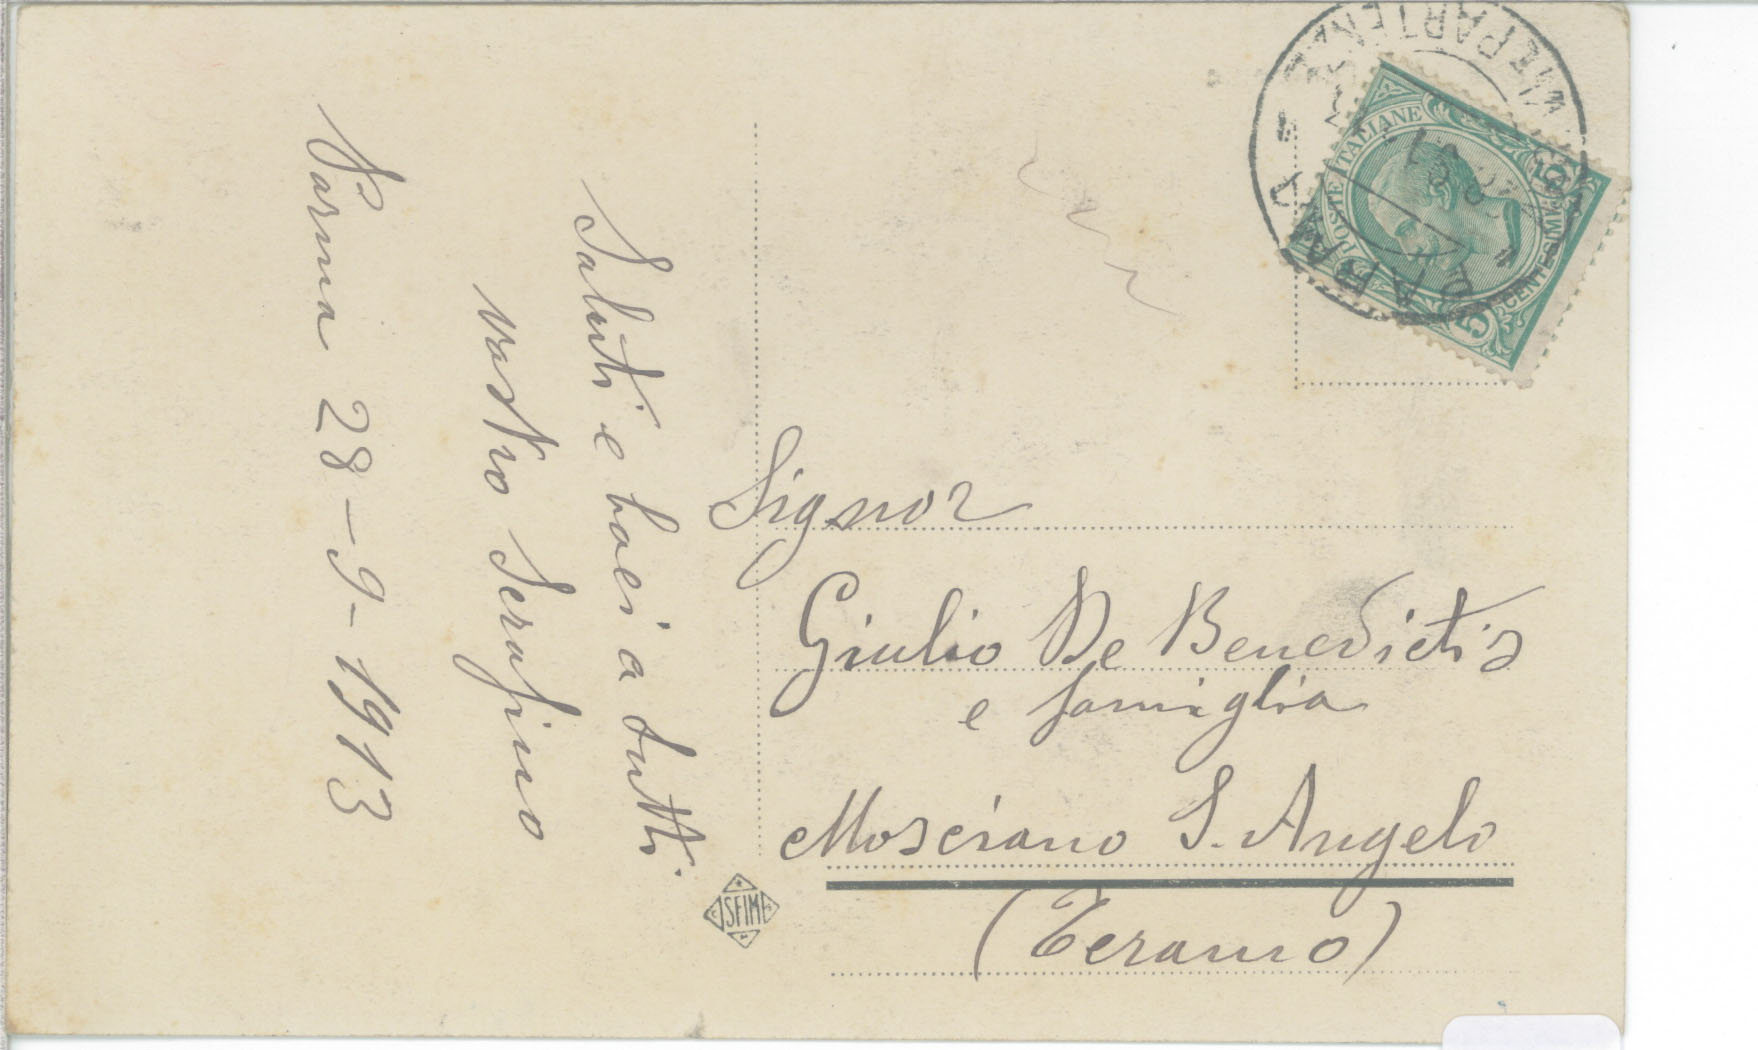 Saluti e baci a tutti.
vostro Serafino
Parma 28-9-1913
Signor
Giulio De Benedictis
e famiglia
Mosciano S. Angelo
(Teramo)
POSTE ITALIANE
5 CENTESIMI 5
PARMA
SFIME